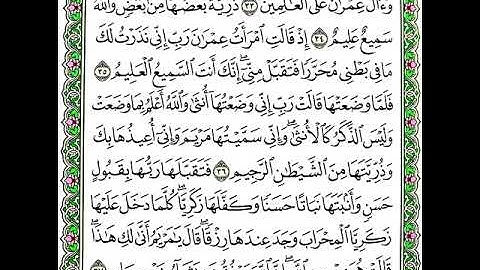 وَءَالَ عِمْرَٰنَ عَلَى ٱلْعَٰلَمِينَ ٣٣ ذُرِّيَّةًۢ بَعْضُهَا مِنۢ بَعْضٍۢ وَٱللَّهُ
سَمِيعٌ عَلِيمٌ ٣٤ إِذْ قَالَتِ ٱمْرَأَتُ عِمْرَٰنَ رَبِّ إِنِّى نَذَرْتُ لَكَ
مَا فِى بَطْنِى مُحَرَّرًا فَتَقَبَّلْ مِنِّىٓ إِنَّكَ أَنتَ ٱلسَّمِيعُ ٱلْعَلِيمُ ٣٥
فَلَمَّا وَضَعَتْهَا قَالَتْ رَبِّ إِنِّى وَضَعْتُهَآ أُنثَىٰ وَٱللَّهُ أَعْلَمُ بِمَا وَضَعَتْ
وَلَيْسَ ٱلذَّكَرُ كَٱلْأُنثَىٰ وَإِنِّى سَمَّيْتُهَا مَرْيَمَ وَإِنِّىٓ أُعِيذُهَا بِكَ
وَذُرِّيَّتَهَا مِنَ ٱلشَّيْطَٰنِ ٱلرَّجِيمِ ٣٦ فَتَقَبَّلَهَا رَبُّهَا بِقَبُولٍ
حَسَنٍۢ وَأَنۢبَتَهَا نَبَاتًا حَسَنًۭا وَكَفَّلَهَا زَكَرِيَّا كُلَّمَا دَخَلَ عَلَيْهَا
زَكَرِيَّا ٱلْمِحْرَابَ وَجَدَ عِندَهَا رِزْقًۭا قَالَ يَٰمَرْيَمُ أَنَّىٰ لَكِ هَٰذَا